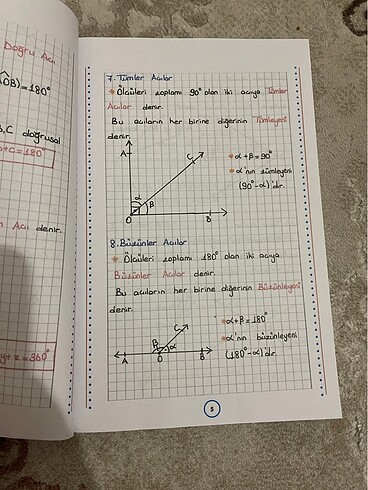 Doğru Açı
OB)=180°
B,C doğrusal
+c=180°
Açı denir.
y+z=360°
7. Tümler Açılar
* Ölçüleri toplamı 90° olan iki açıya Tümler
Açılar denir.
Bu açıların her birine diğerinin Tümleyeni
denir.
A
C
* α+β=90°
* α'nın tümleyeni
(90°-α)'dır.
α
β
O
B
8. Bütünler Açılar
* Ölçüleri toplamı 180° olan iki açıya
Bütünler Açılar denir.
Bu açıların her birine diğerinin Bütünleyeni
denir.
C
* α+β=180°
* α'nın bütünleyeni
(180°-α)'dır.
β
α
A
O
B
5